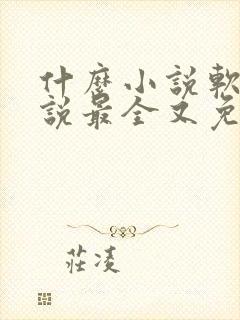 什麼小說軟
說最全又免
莊凌